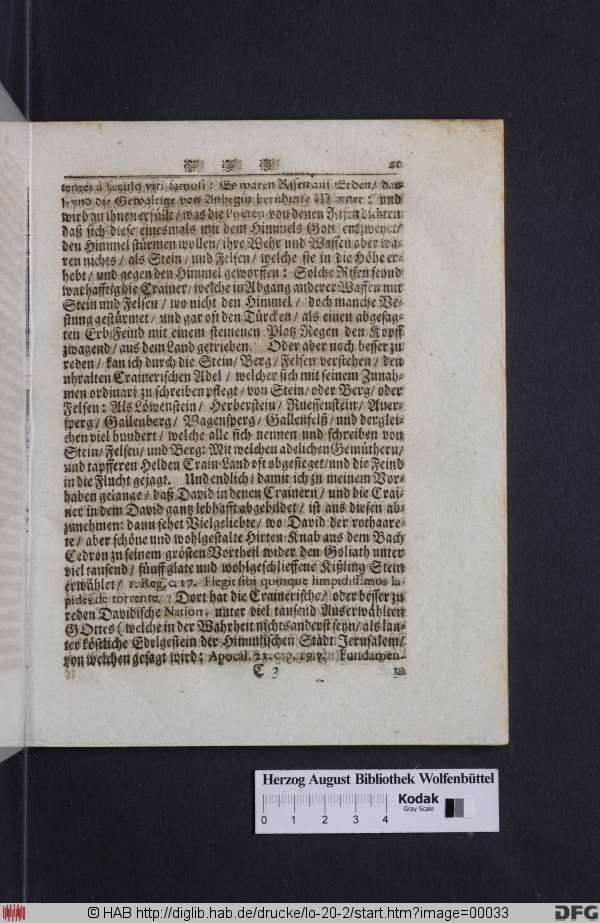 tentes à seculo viri famosi: Es waren Risen auf Erden / das
seynd die Gewaltige von Anbegin berühmte Männer: und
wird an ihnen erfüllt / was die Poeten von denen Risen dichten
daß sich diese einesmals mit dem Himmels Gott entzweyet /
den Himmel stürmen wollen / ihre Wehr und Waffen aber wa-
ren nichts / als Stein / und Felsen / welche sie in die Höhe er-
hebt / und gegen den Himmel geworffen: Solche Risen seynd
warhafftig die Crainer / welche in Abgang anderer Waffen mit
Stein und Felsen / wo nicht den Himmel / doch manche Ve-
stung gestürmet / und gar oft den Türcken / als einen abgesag-
ten Erb-Feind mit einem steinenen Platz Regen den Kopff
zwagend / aus dem Land getrieben. Oder aber noch besser zu
reden / kan ich durch die Stein / Berg / Felsen verstehen / den
uhralten Crainerischen Adel / welcher sich mit seinem Zunah-
men ordinari zu schreiben pflegt / von Stein / oder Berg / oder
Felsen: Als Löwenstein / Herberstein / Ruessenstein / Auer-
sperg / Gallenberg / Wagensperg / Gallenfelß / und derglei-
chen viel hundert / welche alle sich nennen und schreiben von
Stein / Felsen / und Berg: Mit welchen adelichen Gemüthern /
und tapfferen Helden Crain-Land oft obgesieget / und die Feind
in die Flucht gejagt. Und endlich / damit ich zu meinem Vor-
haben gelange / daß David in denen Crainern / und die Crai-
ner in dem David gantz lebhafft abgebildet / ist aus diesen ab-
zunehmen: dann sehet Vielgeliebte / wo David der rothaare-
te / aber schöne und wohlgestalte Hirten-Knab aus dem Bach
Cedron zu seinem grösten Vortheil wider dem Goliath unter
viel tausend / fünff glate und wohlgeschlieffene Kißling-Stein
erwählet / 1. Reg. c. 17. Elegit sibi quinque limpidissimos la-
pides de torrente. Dort hat die Crainerische / oder besser zu
reden Davidische Nation, unter viel tausend Auserwählten
GOttes (welche in der Wahrheit nichts anderst seyn / als lau-
ter köstliche Edelgestein der Himmlischen Stadt Jerusalem /
von welchen gesagt wird: Apocal. 21. cap. 19. v. fundamen-
C 3
ta
Herzog August Bibliothek Wolfenbüttel
0 1 2 3 4
Kodak
Gray Scale
© HAB http://diglib.hab.de/drucke/lo-20-2/start.htm?image=00033
DFG